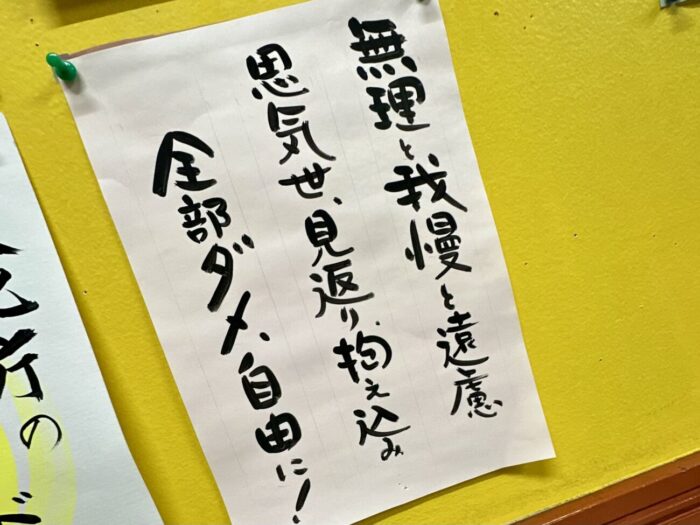 無理と我慢と遠慮
思気せ、見返り、抱え込み
全部ダメ、自由に!
行の